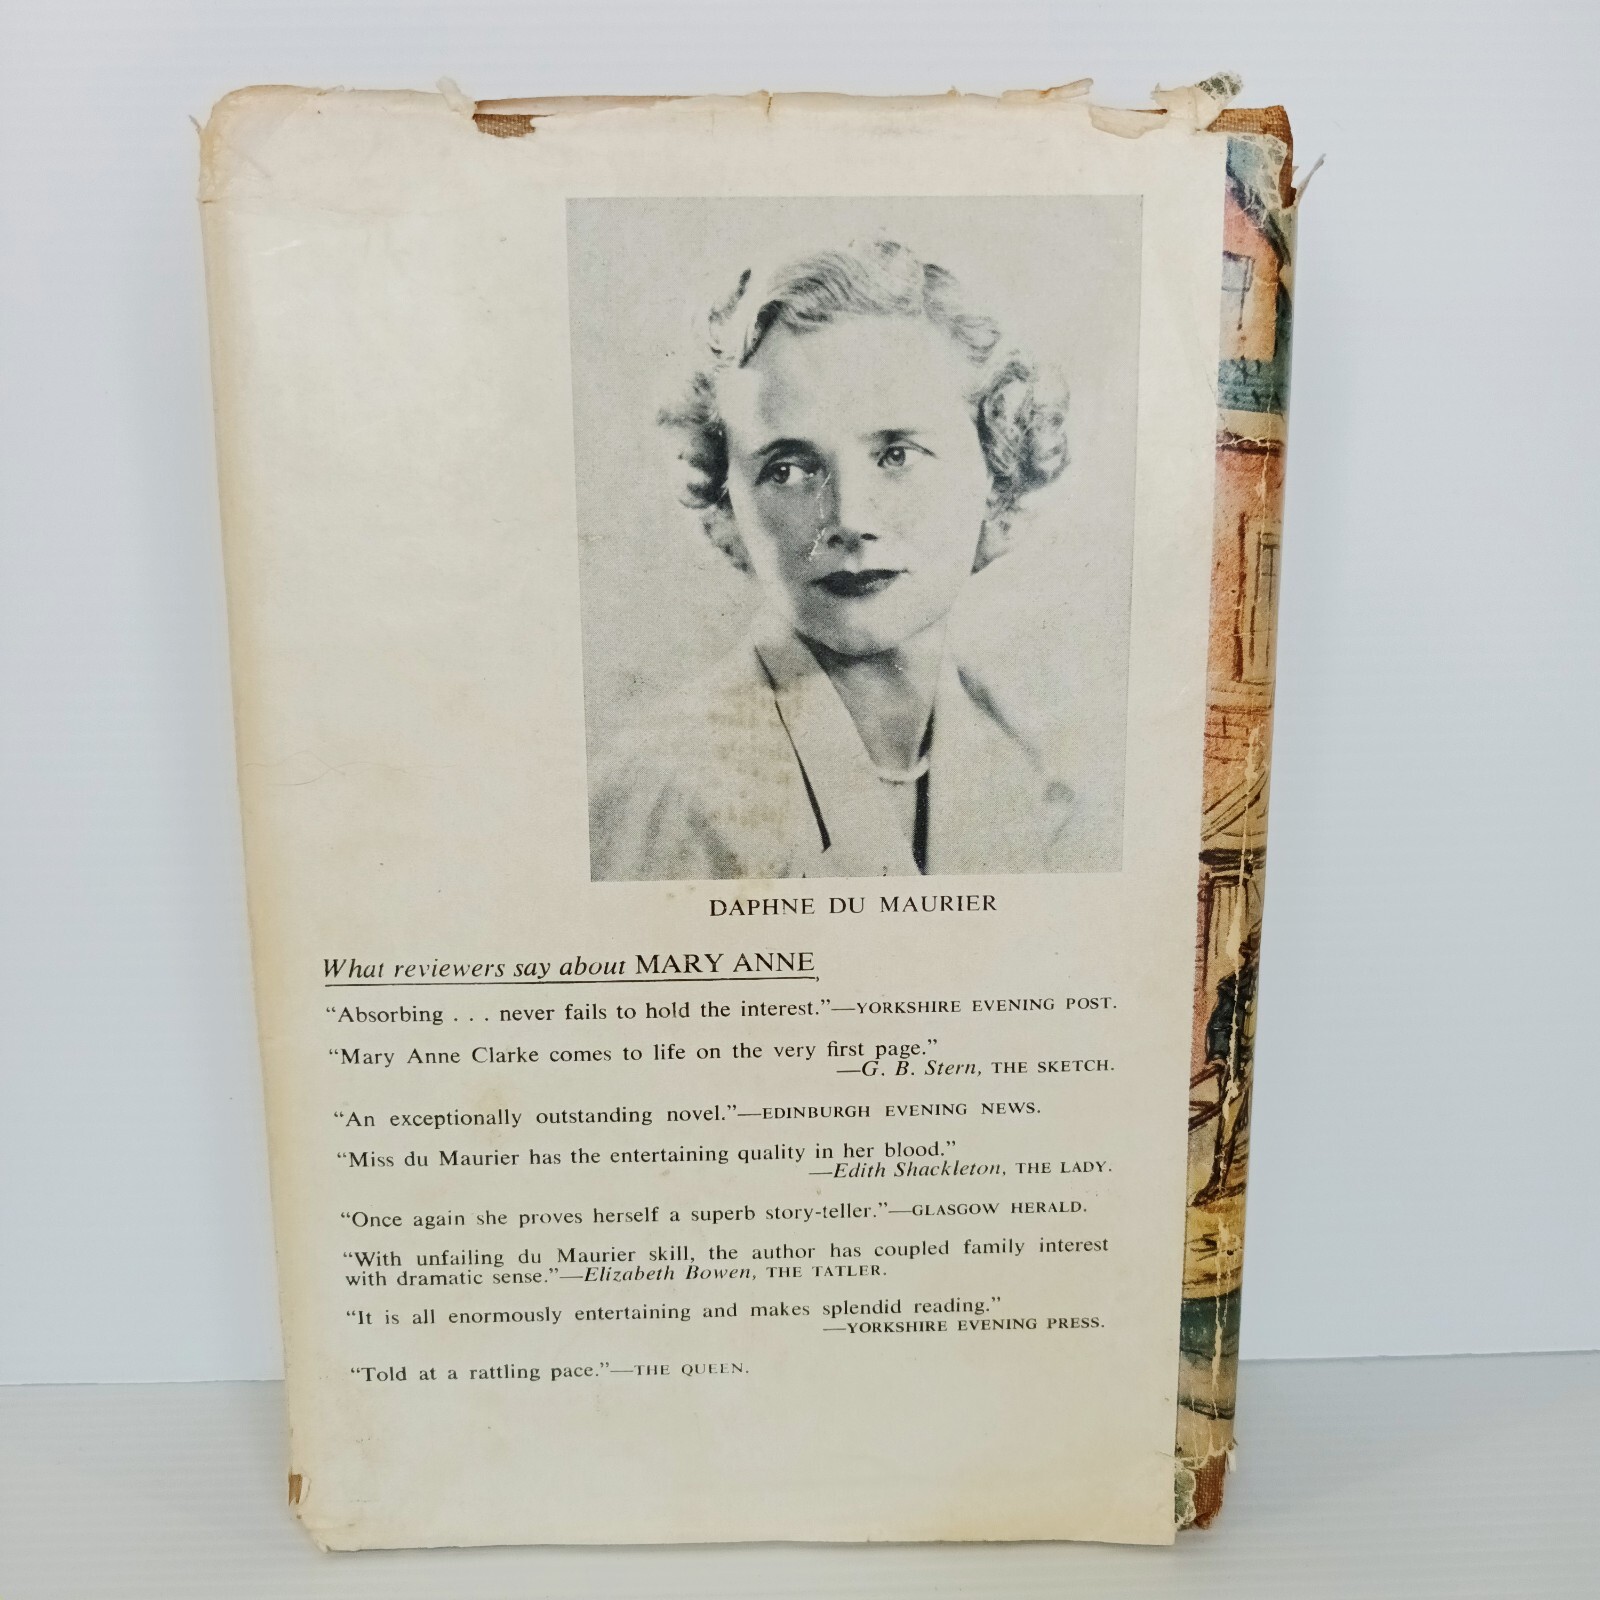 DAPHNE DU MAURIER
What reviewers say about MARY ANNE
“Absorbing . . . never fails to hold the interest.”—YORKSHIRE EVENING POST.
“Mary Anne Clarke comes to life on the very first page.”
—G. B. Stern, THE SKETCH.
“An exceptionally outstanding novel.”—EDINBURGH EVENING NEWS.
“Miss du Maurier has the entertaining quality in her blood.”
—Edith Shackleton, THE LADY.
“Once again she proves herself a superb story-teller.”—GLASGOW HERALD.
“With unfailing du Maurier skill, the author has coupled family interest
with dramatic sense.”—Elizabeth Bowen, THE TATLER.
“It is all enormously entertaining and makes splendid reading.”
—YORKSHIRE EVENING PRESS.
“Told at a rattling pace.”—THE QUEEN.